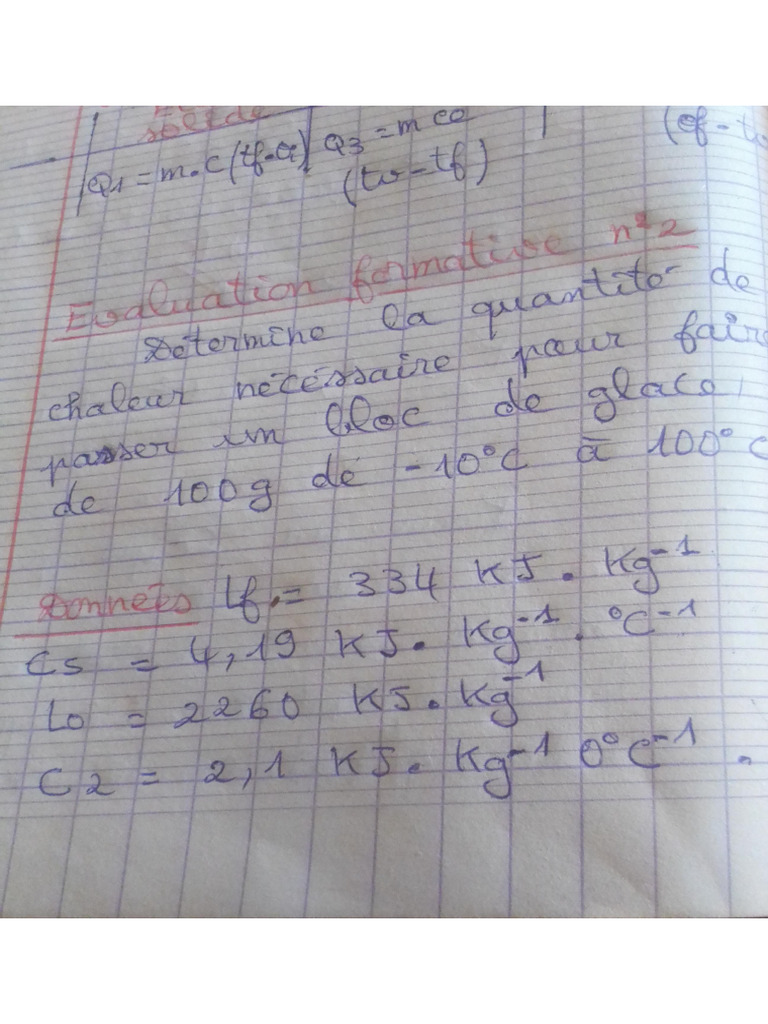 solide
Q1 = m.c(tf-
Q3 = m ce
(tv - tf)
(ef - t
Evaluation formative n°2
Détermine la quantité de
chaleur nécéssaire pour faire
passer un bloc de glace,
de 100g de -10°C à 100°C
Données Lf = 334 KJ. Kg⁻¹
Cs = 4,19 KJ. Kg⁻¹. °C⁻¹
Lv = 2260 KJ. Kg⁻¹
C2 = 2,1 KJ. Kg⁻¹ 0°C⁻¹.